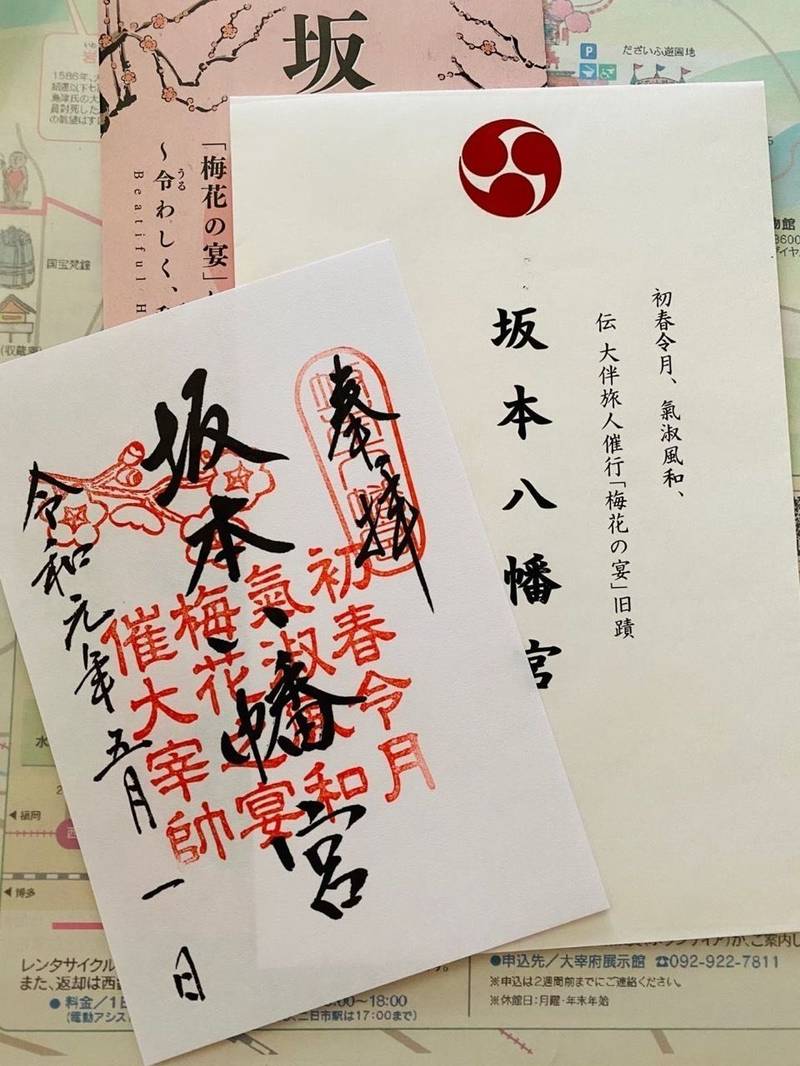 坂
「梅花の宴」
うる
～令わしく、
Beatiful H
P
だざいふ遊園地
国宝梵鐘
初春令月、氣淑風和、
伝 大伴旅人催行「梅花の宴」旧蹟
坂本八幡宮
奉拝
坂本八幡宮
令和元年五月一日
初春令月
氣淑風和
梅花之宴
催大宰帥
福岡
博多
レンタサイクル
また、返却は西
●料金／1日
(電動アシス
～18:00
二日市駅は17:00まで)
●申込先／大宰府展示館 ☎092-922-7811
※申込は2週間前までにご連絡ください。
※休館日：月曜・年末年始